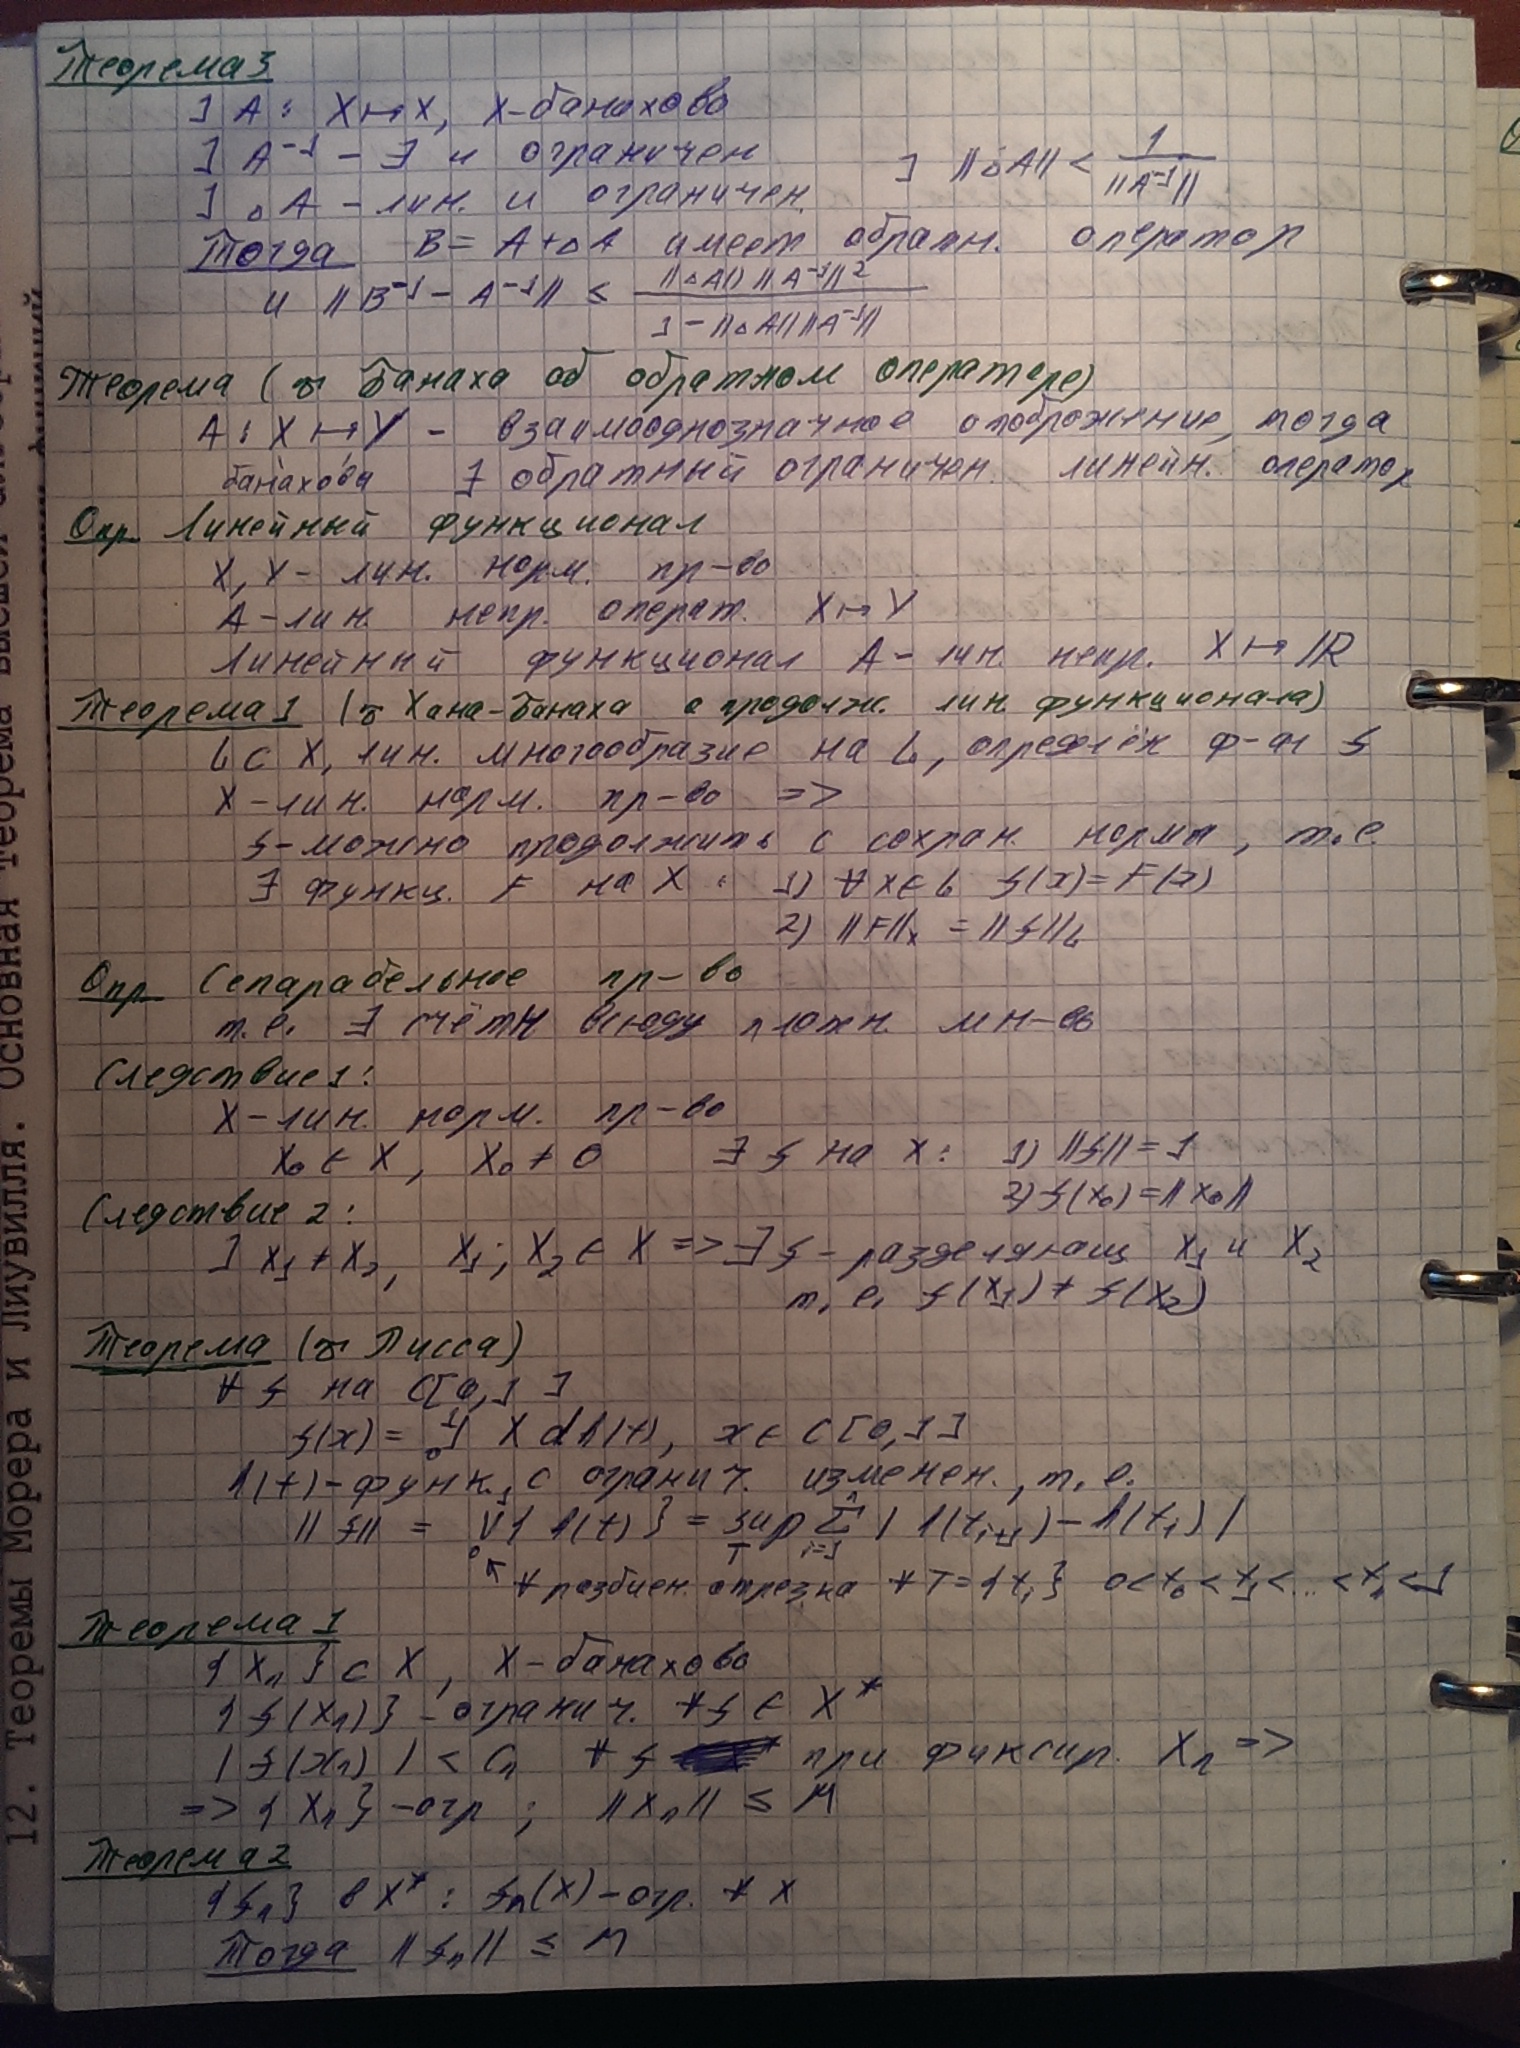 Теорема 3
] A : X ↦ X, X - банахово
] A⁻¹ - ∃ и ограничен ] ||△A|| < 1/||A⁻¹||
] △A - лин. и ограничен.
Тогда B = A + △A имеет обратн. оператор
и ||B⁻¹ - A⁻¹|| ≤ ||△A|| ||A⁻¹||² / 1 - ||△A|| ||A⁻¹||
Теорема (т. Банаха об обратном операторе)
A : X ↦ Y - взаимооднозначное отображение, тогда
банахова ∃ обратный ограничен. линейн. оператор
Опр. Линейный функционал
X, Y - лин. норм. пр-во
A - лин. непр. операт. X ↦ Y
Линейный функционал A - лин. непр. X ↦ R
Теорема 1 (т. Хана-Банаха о продолж. лин. функционала)
L ⊂ X, лин. многообразие на L, определён ф-ал f
X - лин. норм. пр-во =>
f - можно продолжить с сохран. нормы, т.е.
∃ функц. F на X : 1) ∀ x ∈ L f(x) = F(x)
2) ||F||ₓ = ||f||_L
Опр. Сепарабельное пр-во
т.е. ∃ счётн всюду плотн. мн-во
Следствие 1:
X - лин. норм. пр-во
X₀ ∈ X, X₀ ≠ 0 ∃ f на X : 1) ||f|| = 1
2) f(x₀) = ||x₀||
Следствие 2:
] X₁ ≠ X₂, X₁; X₂ ∈ X => ∃ f - разделяющ X₁ и X₂
т.е. f(X₁) ≠ f(X₂)
Теорема (т. Рисса)
∀ f на C[0,1]
f(x) = ₀∫¹ X dh(t), x ∈ C[0,1]
h(t) - функ., с огранич. изменен., т.е.
||f|| = ₀V¹{h(t)} = sup_T Σⁿᵢ₌₁ |h(tᵢ₊₁) - h(tᵢ)|
∀ разбиен. отрезка ∀ T = {tᵢ} 0 < t₀ < t₁ < ... < tₙ < 1
Теорема 1
{Xₙ} ⊂ X, X - банахово
{f(Xₙ)} - огранич. ∀ f ∈ X*
|f(xₙ)| < Cₙ ∀ f при фиксир. Xₙ =>
=> {Xₙ} - огр ; ||Xₙ|| ≤ M
Теорема 2
{fₙ} в X* : fₙ(X) - огр. ∀ X
Тогда ||fₙ|| ≤ M
12. Теоремы Морера и Лиувилля. Основная теорема высшей